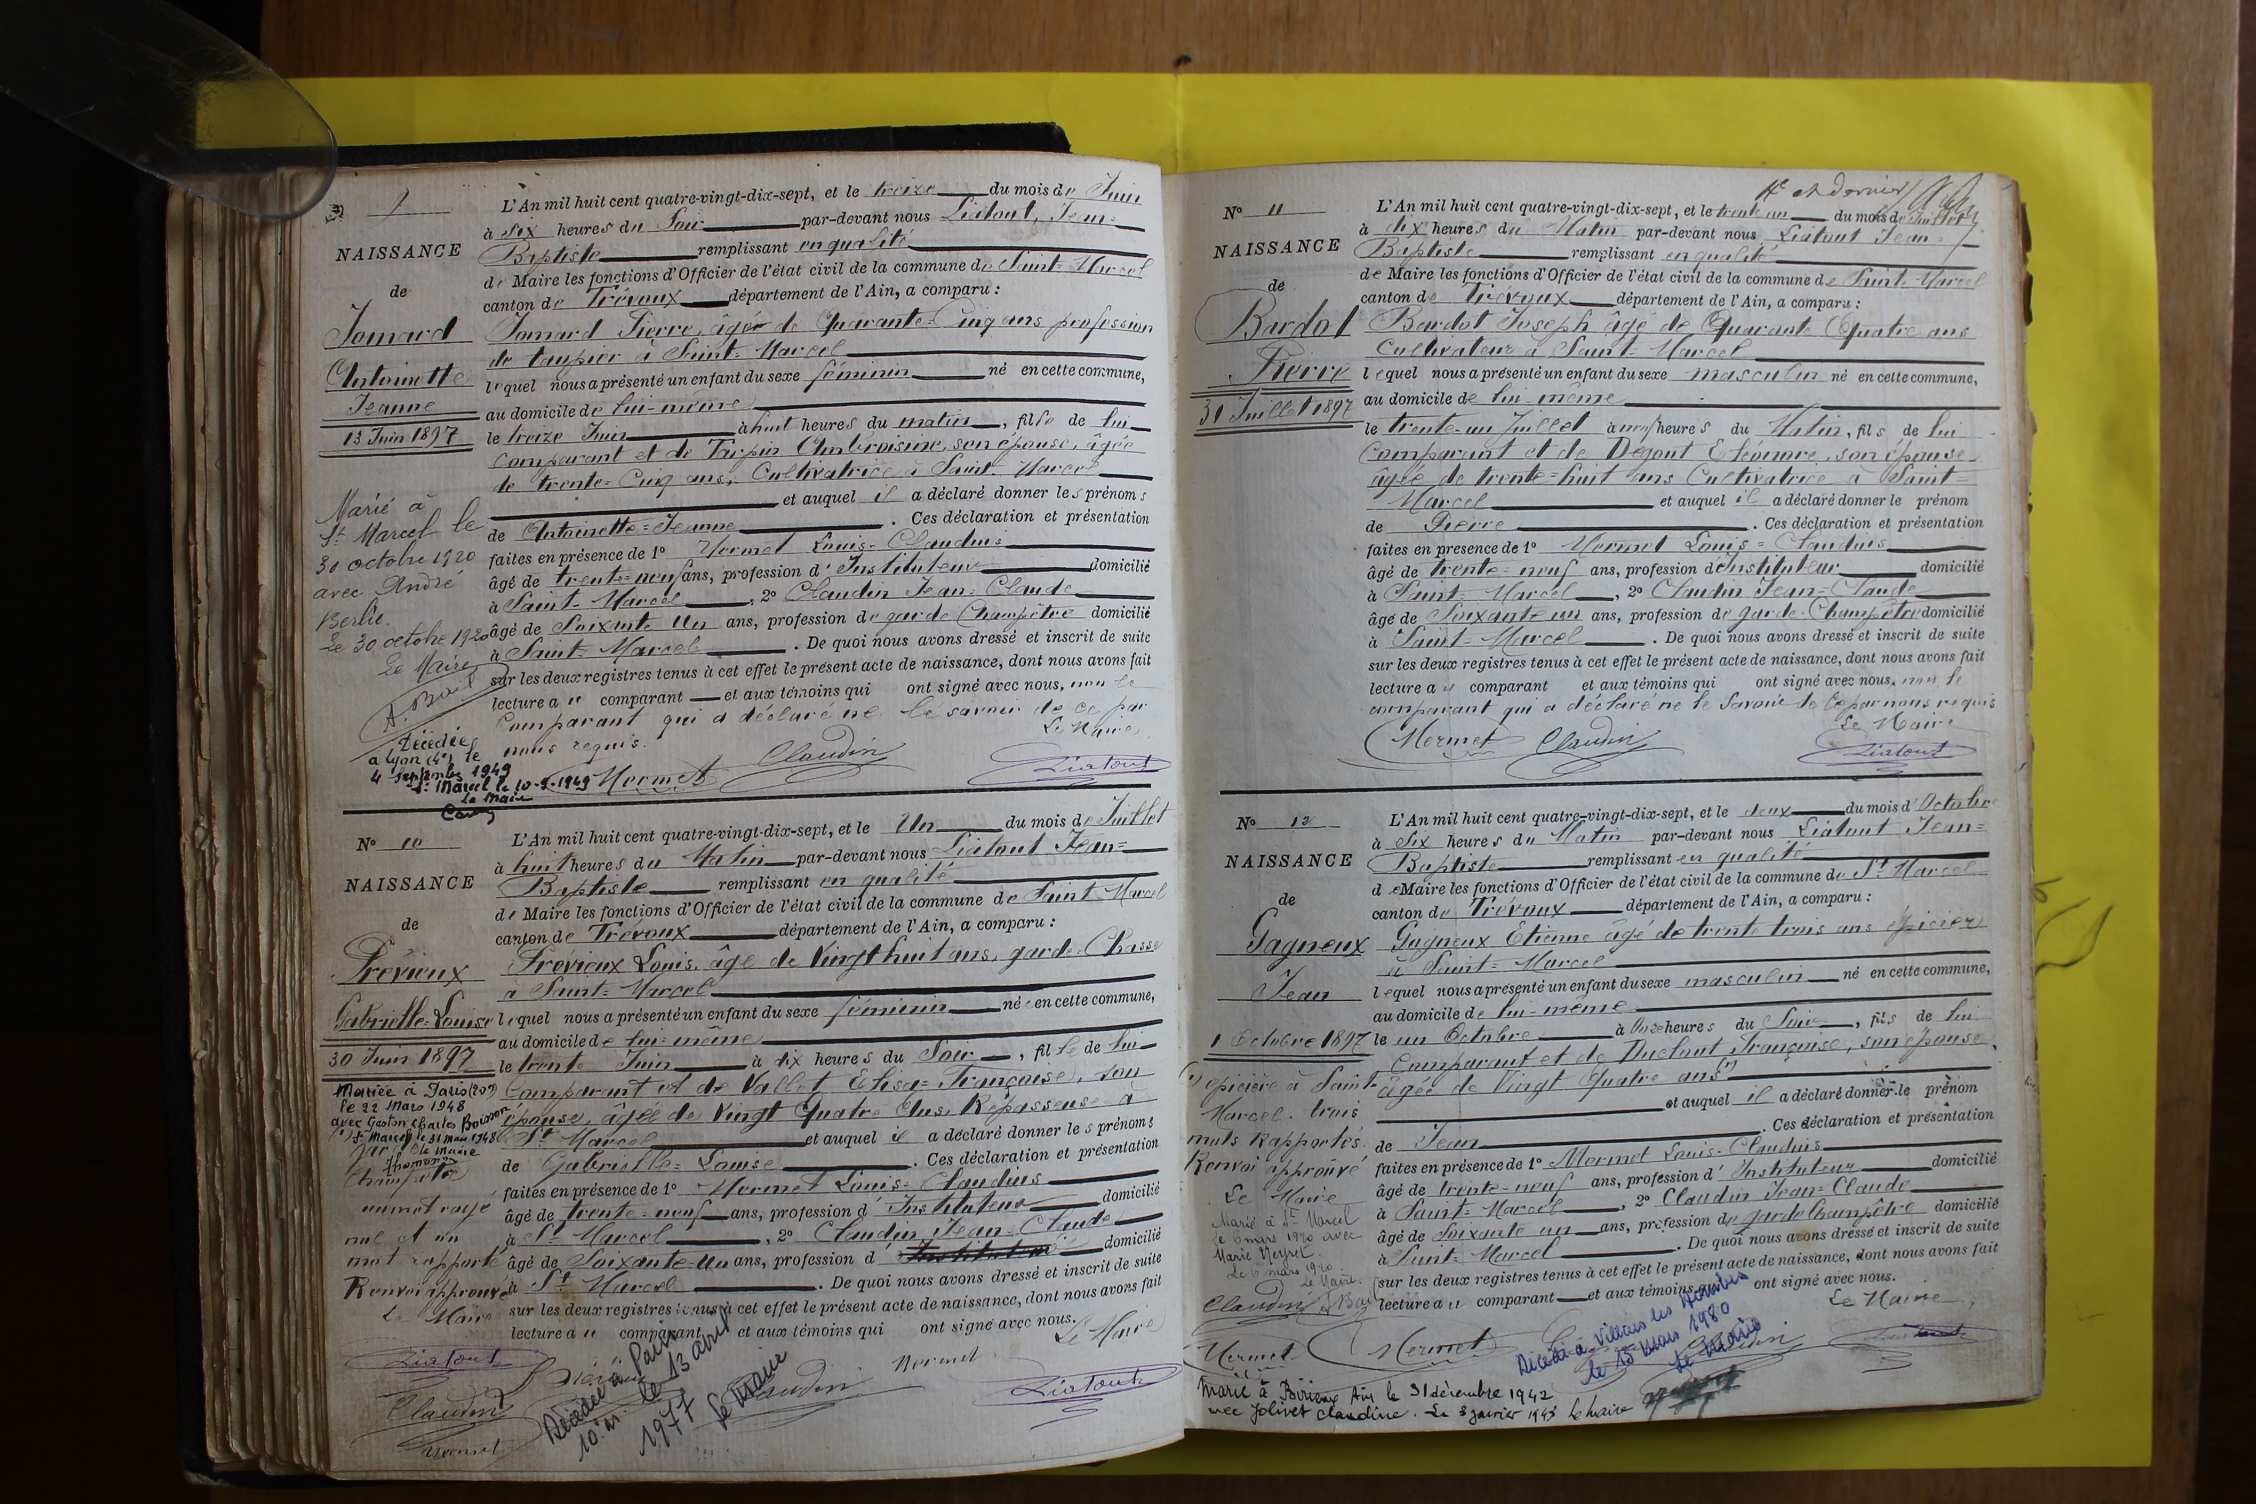 L'An mil huit cent quatre-vingt-dix-sept, et le treize du mois de Juin
à six heures du Soir par-devant nous Liatout, Jean-
NAISSANCE
Baptiste remplissant en qualité
de Maire les fonctions d'Officier de l'état civil de la commune de Saint-Marcel
de
canton de Trévoux département de l'Ain, a comparu :
Jomard
Jomard Pierre, âgé de Quarante-Cinq ans profession
de taupier à Saint-Marcel
Antoinette
lequel nous a présenté un enfant du sexe féminin né en cette commune,
Jeanne
au domicile de lui-même
13 Juin 1897
le treize Juin à huit heures du matin, fille de lui
comparant et de Tarpin Ambroisine, son épouse, âgée
de trente-Cinq ans, Cultivatrice à Saint-Marcel
et auquel il a déclaré donner les prénoms
de Antoinette=Jeanne. Ces déclaration et présentation
faites en présence de 1º Mermet Louis-Claudius
âgé de trente-neuf ans, profession d'Instituteur domicilié
à Saint-Marcel, 2º Claudin Jean-Claude
âgé de Soixante Un ans, profession de garde Champêtre domicilié
à Saint-Marcel. De quoi nous avons dressé et inscrit de suite
sur les deux registres tenus à cet effet le présent acte de naissance, dont nous avons fait
lecture au comparant et aux témoins qui ont signé avec nous, non le
Comparant qui a déclaré ne le savoir de ce par
nous requis.
Le Maire
Mermet Claudin Liatout
Marié à
St Marcel le
30 octobre 1920
avec André
Berlie.
Le 30 octobre 1920
Le Maire
Décédée
à Lyon (4e) le
4 Septembre 1949
St Marcel le 10-9-1949
Le Maire
Nº 10
L'An mil huit cent quatre-vingt-dix-sept, et le Un du mois de Juillet
à huit heures du Matin par-devant nous Liatout Jean-
NAISSANCE
Baptiste remplissant en qualité
de Maire les fonctions d'Officier de l'état civil de la commune de Saint-Marcel
de
canton de Trévoux département de l'Ain, a comparu :
Prévieux
Prévieux Louis, âgé de Vingt huit ans, garde-Chasse
à Saint-Marcel
Gabrielle-Louise
lequel nous a présenté un enfant du sexe féminin né en cette commune,
au domicile de lui-même
30 Juin 1897
le trente Juin à dix heures du Soir, fille de lui
Comparant et de Vallet Elisa-Françoise, son
épouse, âgée de Vingt Quatre Ans, Repasseuse à
St Marcel et auquel il a déclaré donner les prénoms
de Gabrielle-Louise. Ces déclaration et présentation
faites en présence de 1º Mermet Louis-Claudius
âgé de trente-neuf ans, profession d'Instituteur domicilié
à St Marcel, 2º Claudin Jean-Claude
âgé de Soixante-Un ans, profession d' domicilié
à St Marcel. De quoi nous avons dressé et inscrit de suite
sur les deux registres tenus à cet effet le présent acte de naissance, dont nous avons fait
lecture au comparant et aux témoins qui ont signé avec nous.
Le Maire
Mermet
Claudin Liatout
Mariée à Paris (20e)
le 22 Mars 1948
avec Gaston Charles Boisson
St Marcel le 31 mars 1948
Le Maire
Thomonon
Champêtre
un mot rayé
nul et un
mot rapporté
Renvoi approuvé
Le Maire
Liatout
Claudin
Mermet
Décédée à Paris
10e le 13 avril
1977
Le Maire
11e et dernier
Nº 11
L'An mil huit cent quatre-vingt-dix-sept, et le trente un du mois de Juillet
à dix heures du Matin par-devant nous Liatout Jean-
NAISSANCE
Baptiste remplissant en qualité
de Maire les fonctions d'Officier de l'état civil de la commune de Saint-Marcel
de
canton de Trévoux département de l'Ain, a comparu :
Bardot
Bardot Joseph âgé de Quarante Quatre ans
Cultivateur à Saint-Marcel
Pierre
lequel nous a présenté un enfant du sexe masculin né en cette commune,
31 Juillet 1897
au domicile de lui-même
le trente-un Juillet à neuf heures du Matin, fils de lui
Comparant et de Degout Eléonore, son épouse
âgée de trente-huit ans Cultivatrice à Saint-
Marcel et auquel il a déclaré donner le prénom
de Pierre. Ces déclaration et présentation
faites en presence de 1º Mermet Louis-Claudius
âgé de trente-neuf ans, profession d'Instituteur domicilié
à Saint-Marcel, 2º Claudin Jean-Claude
âgé de Soixante un ans, profession de garde-Champêtre domicilié
à Saint-Marcel. De quoi nous avons dressé et inscrit de suite
sur les deux registres tenus à cet effet le présent acte de naissance, dont nous avons fait
lecture au comparant et aux témoins qui ont signé avec nous, non le
comparant qui a déclaré ne le savoir de ce par nous requis
Le Maire
Mermet Claudin Liatout
Nº 12
L'An mil huit cent quatre-vingt-dix-sept, et le deux du mois d'Octobre
à Six heures du Matin par-devant nous Liatout Jean-
NAISSANCE
Baptiste remplissant en qualité
de Maire les fonctions d'Officier de l'état civil de la commune de St Marcel
de
canton de Trévoux département de l'Ain, a comparu :
Gagneux
Gagneux Etienne âgé de trente trois ans épicier
à Saint-Marcel
Jean
lequel nous a présenté un enfant du sexe masculin né en cette commune,
au domicile de lui-même
1 Octobre 1897
le un Octobre à Onze heures du Soir, fils de lui
Comparant et de Duclout Françoise, son épouse,
âgée de Vingt Quatre ans (1)
et auquel il a déclaré donner le prénom
de Jean. Ces déclaration et présentation
faites en présence de 1º Mermet Louis-Claudius
âgé de trente-neuf ans, profession d'Instituteur domicilié
à Saint-Marcel, 2º Claudin Jean-Claude
âgé de Soixante un ans, profession de garde Champêtre domicilié
à Saint-Marcel. De quoi nous avons dressé et inscrit de suite
sur les deux registres tenus à cet effet le présent acte de naissance, dont nous avons fait
lecture au comparant et aux témoins qui ont signé avec nous.
Le Maire
Mermet Claudin Liatout
(1) épicière à Saint-
Marcel. trois
mots Rapportés.
Renvoi approuvé
Le Maire
Marié à St Marcel
le 6 mars 1920 avec
Marie Neyret.
Le 6 mars 1920
Le Maire.
Claudin
Mermet
Décédé à Villars les Dombes
le 15 Mars 1980
Le Maire
Marié à Birieux Ain le 31 décembre 1942
avec Jolivet Claudine. Le 3 janvier 1943 Le Maire